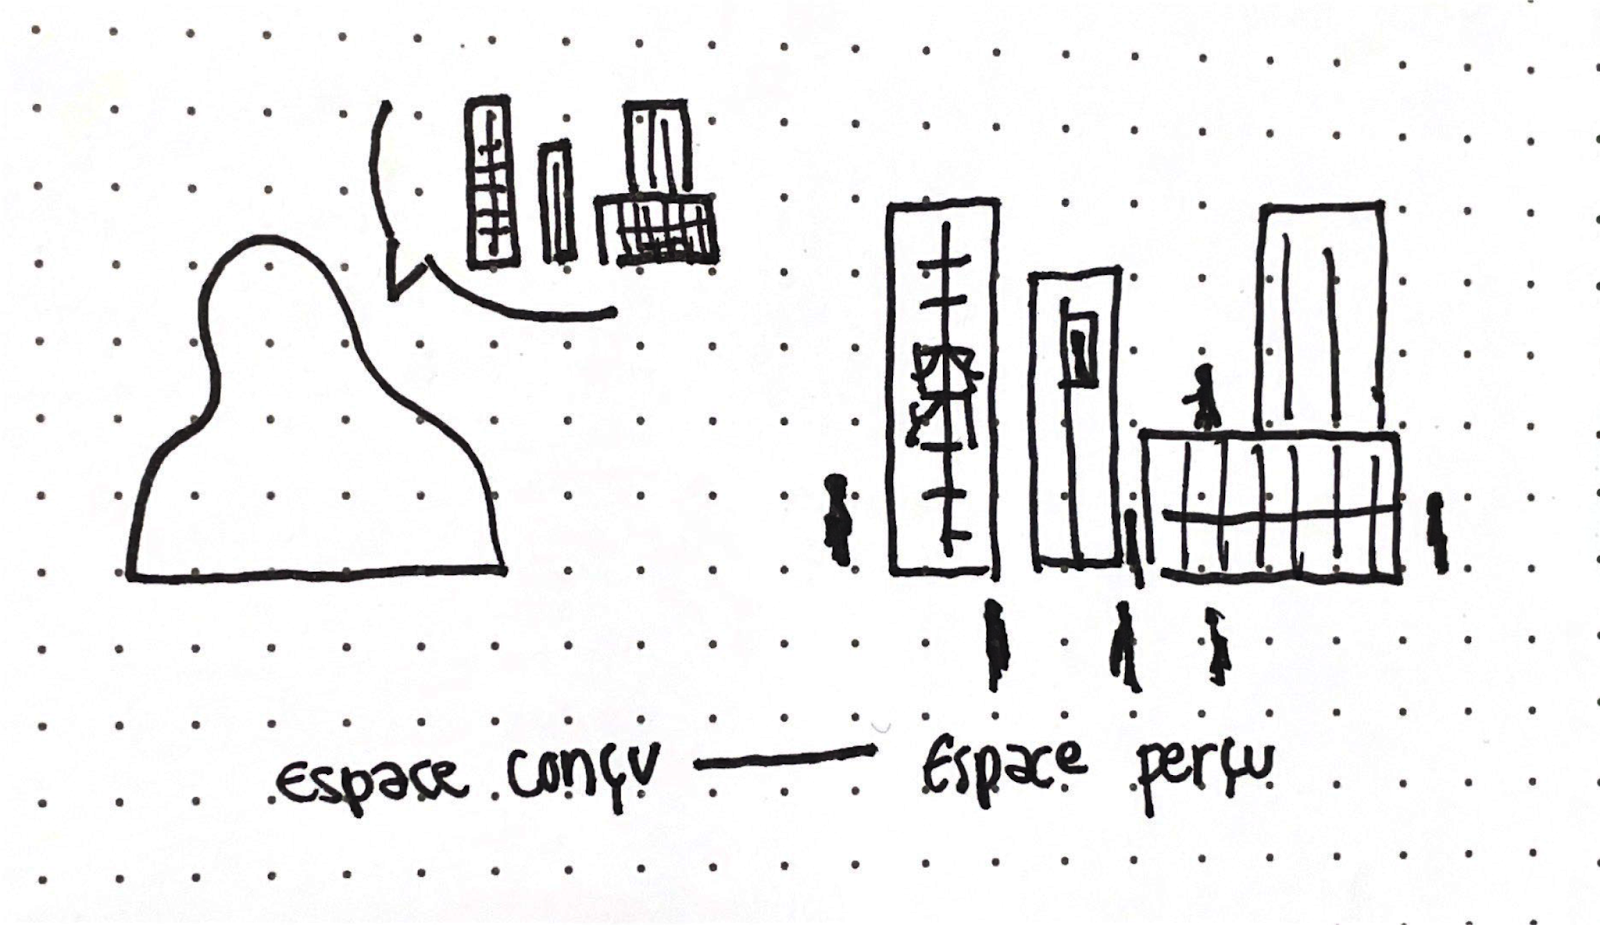 Espace conçu — Espace perçu